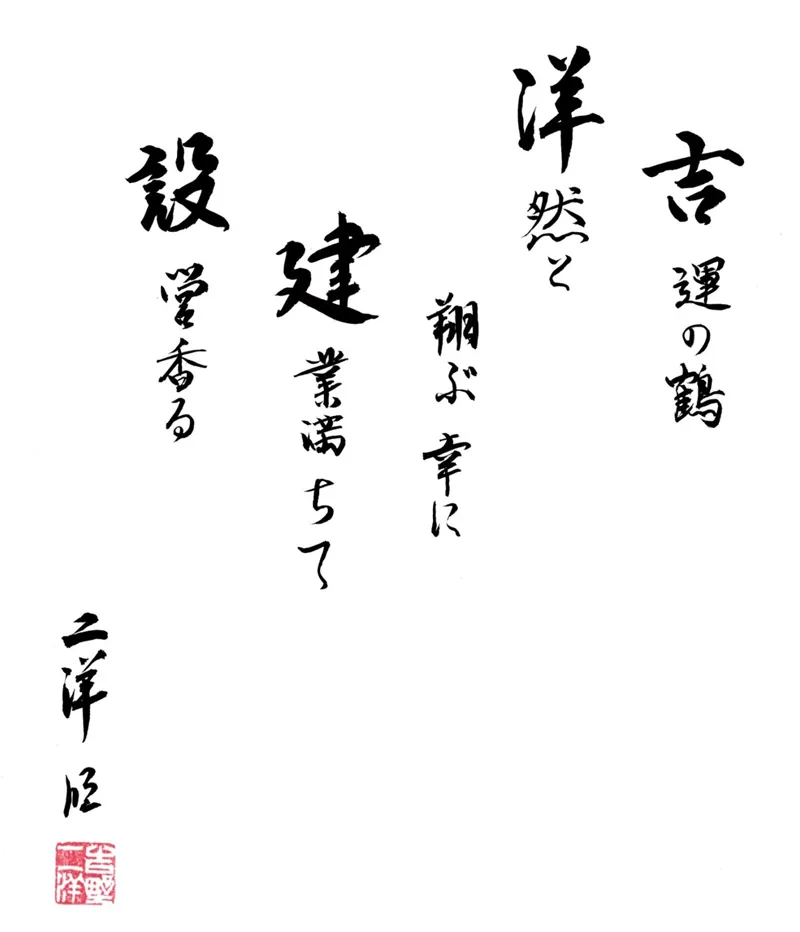 吉運の鶴
洋然と
翔ぶ 幸に
建業満ちて
設営香る
二洋
吉野
二洋